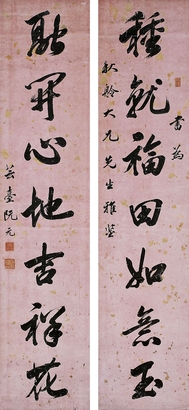 種就福田如意玉
書為
秋舲大兄先生雅鑒
融開心地吉祥花
芸臺阮元